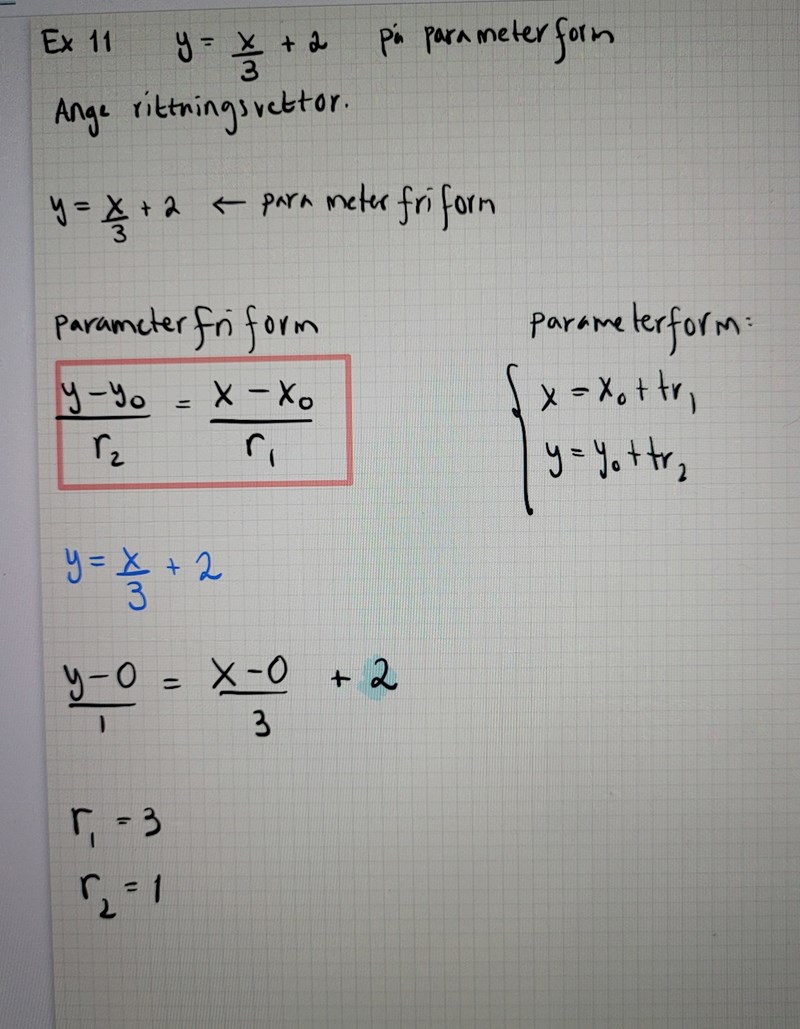 Ex 11 y = x/3 + 2 på parameterform
Ange riktningsvektor.
y = x/3 + 2 ← parameterfri form
parameterfri form
parameterform:
(y - y₀)/r₂ = (x - x₀)/r₁
{ x = x₀ + tr₁
y = y₀ + tr₂
y = x/3 + 2
(y - 0)/1 = (x - 0)/3 + 2
r₁ = 3
r₂ = 1